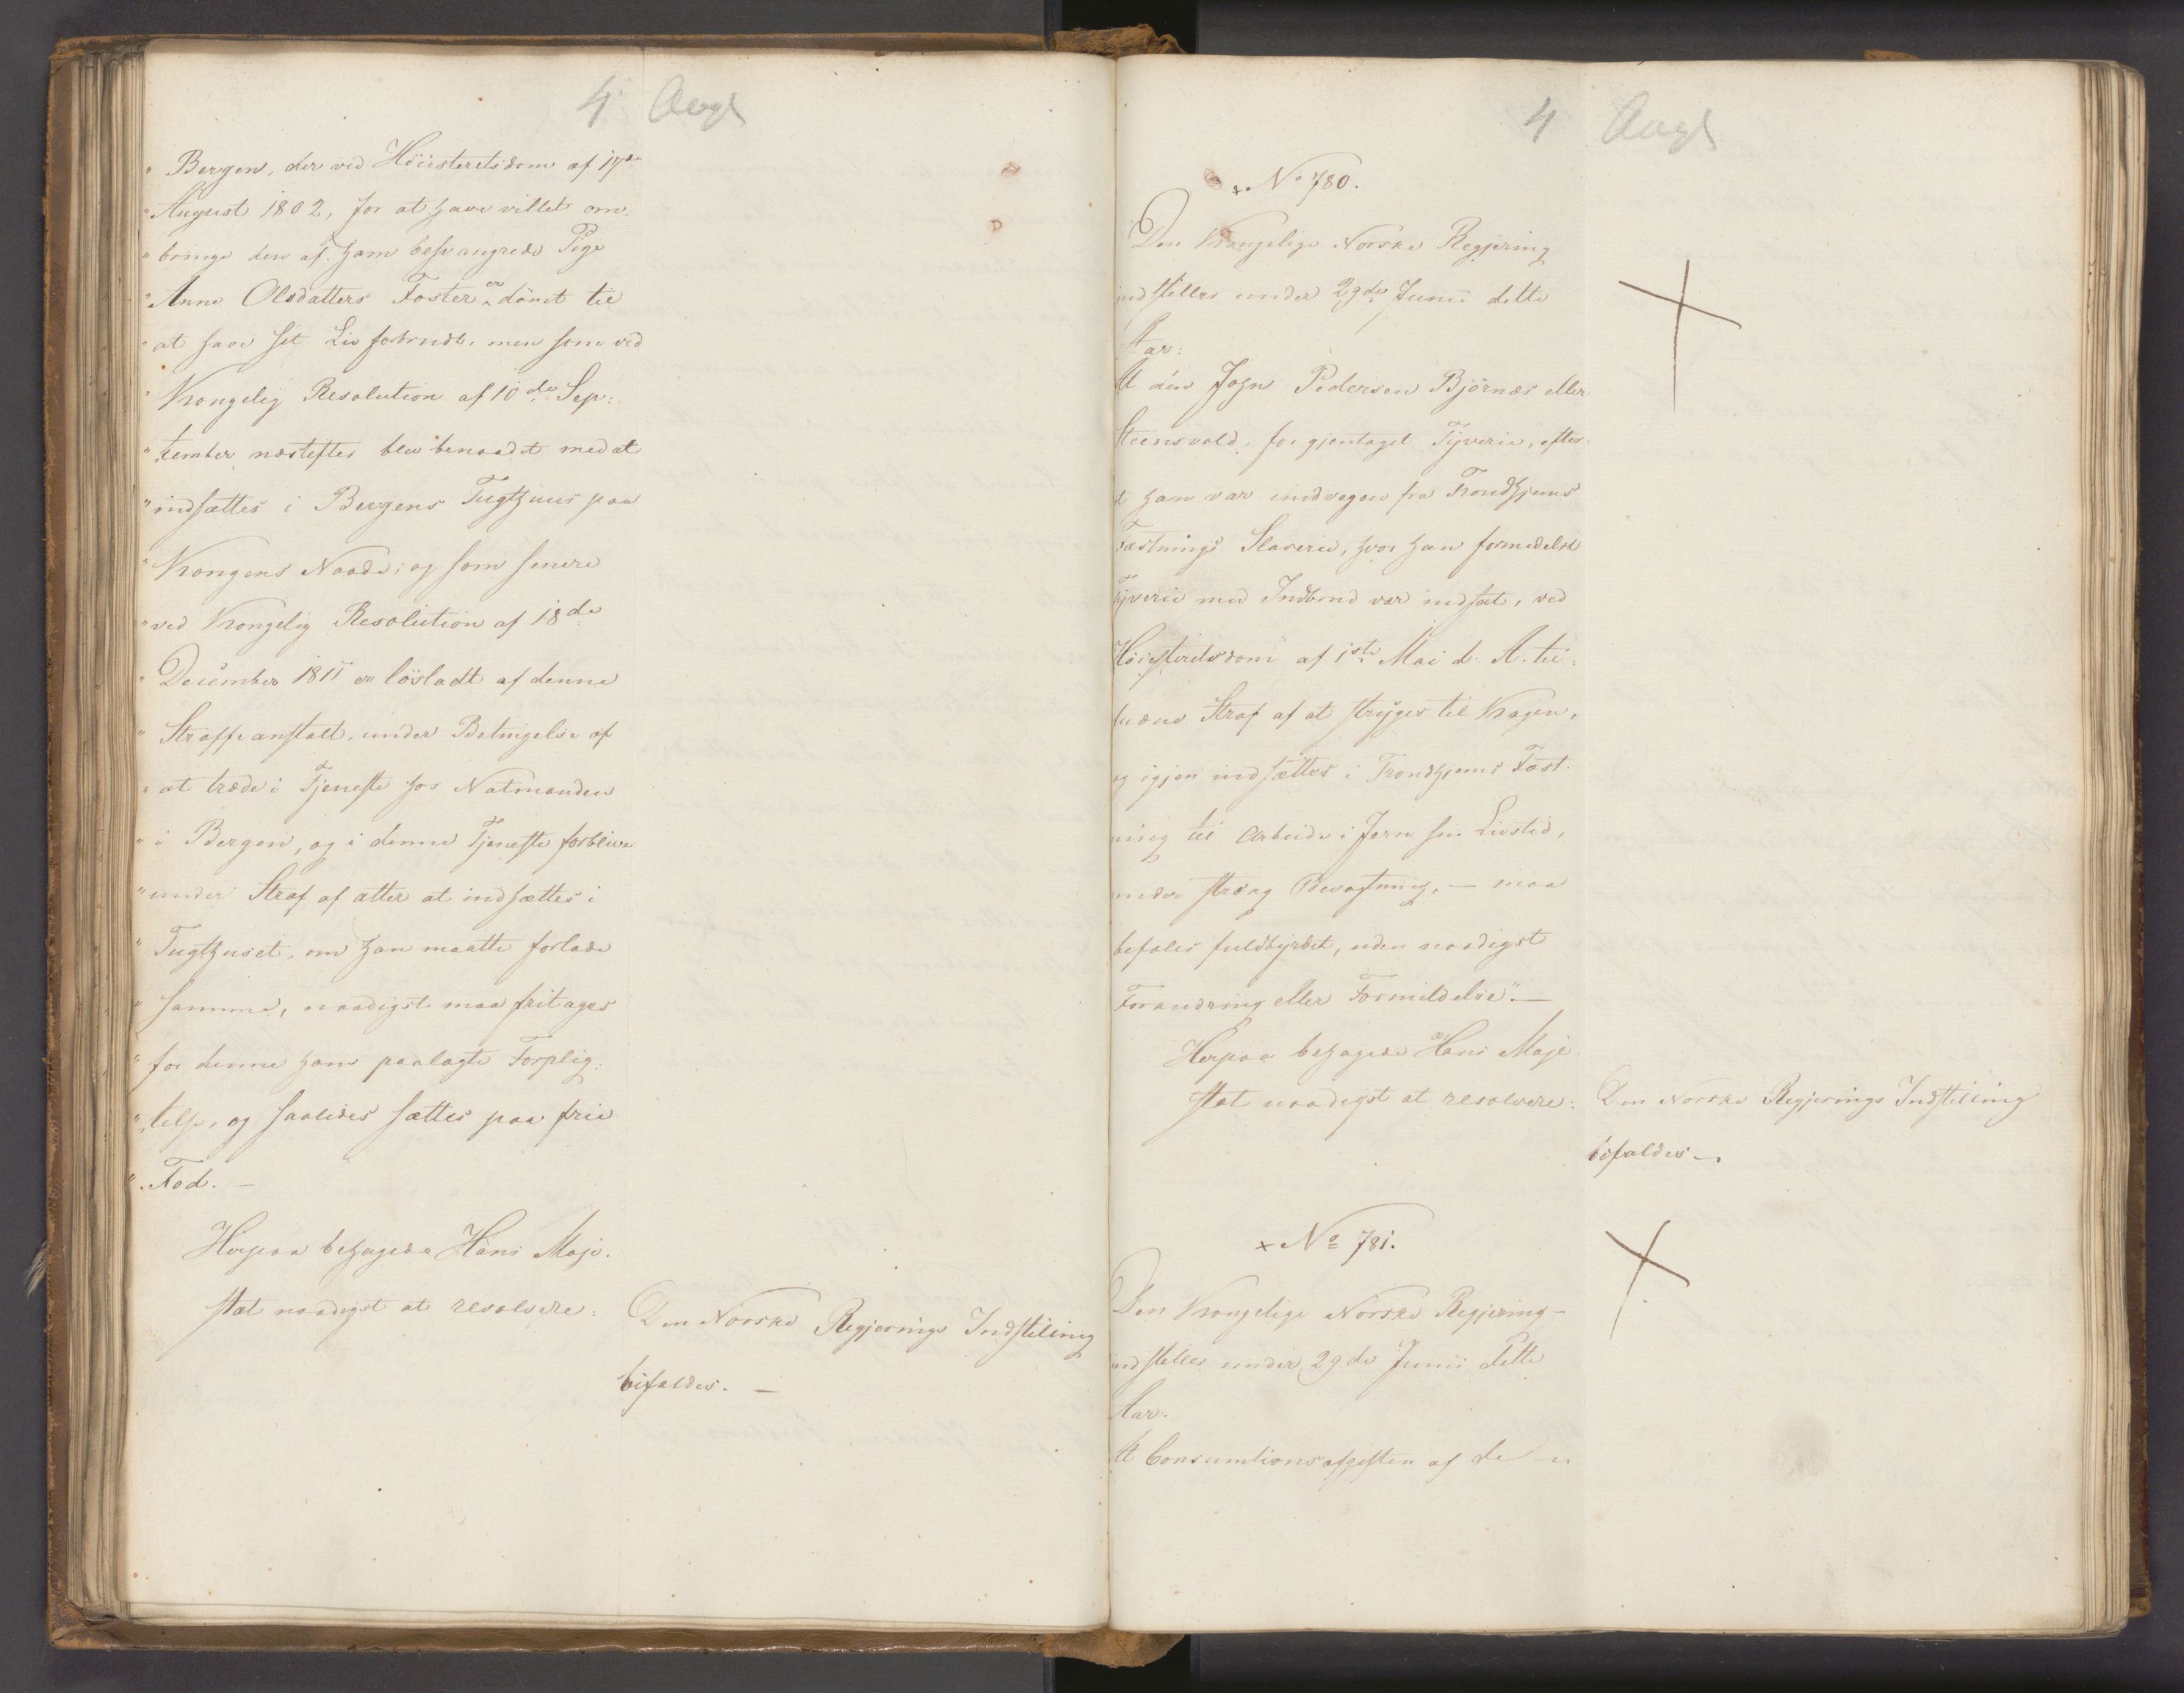 4 Augt
" Bergen, der ved Höiesteretsdom af 17de
" August 1802, for at have villet om-
" bringe den af ham besvangrede Pige
" Anne Olsdatters Foster er dömt til
" at have sit Liv forbrudt, men som ved
" Kongelig Resolution af 10de Sep-
" tember næstefter blev benaadet med at
" indsættes i Bergens Tugthuus paa
" Kongens Naade; og som senere
" ved Kongelig Resolution af 18de
" December 1811 er lösladt af denne
" Straffeanstalt, under Betingelse af
" at træde i Tjeneste hos Natmanden
" i Bergen, og i denne Tjeneste forblive
" under Straf af atter at indsættes i
" Tugthuset, om han maatte forlade
" samme, naadigst maa fritages
" for denne ham paalagte Forplig-
" telse, og saaledes sættes paa frie
" Fod. —
Herpaa behagede Hans Maje-
stæt naadigst at resolvere:
Den Norske Regjerings Indstilling
bifaldes. —
4 Augt
+ No 780.
Den Kongelige Norske Regjering
indstilles under 29de Junii dette
Aar:
At den John Pedersen Björnæs eller
Steensvold, for gjentaget Tyverie, efter-
at han var undvegen fra Trondhjems
Fæstnings Slaverie, hvor han formedelst
Tyverie med Indbrud var indsat, ved
Höiesteretsdom af 1ste Mai d. A. til-
fundne Straf af at stryges til Kagen,
og igjen indsættes i Trondhjems Fæst-
ning til Arbeide i Jern sin Livstid,
under stræng Bevogtning, — maa
befales fuldbyrdet, uden naadigst
Forandring eller Formildelse". —
Herpaa behagede Hans Maje-
stæt naadigst at resolvere:
Den Norske Regjerings Indstilling
bifaldes —
+ No 781.
Den Kongelige Norske Regjering
indstilles under 29de Junii dette
Aar.
At Consumtionsafgiften af de